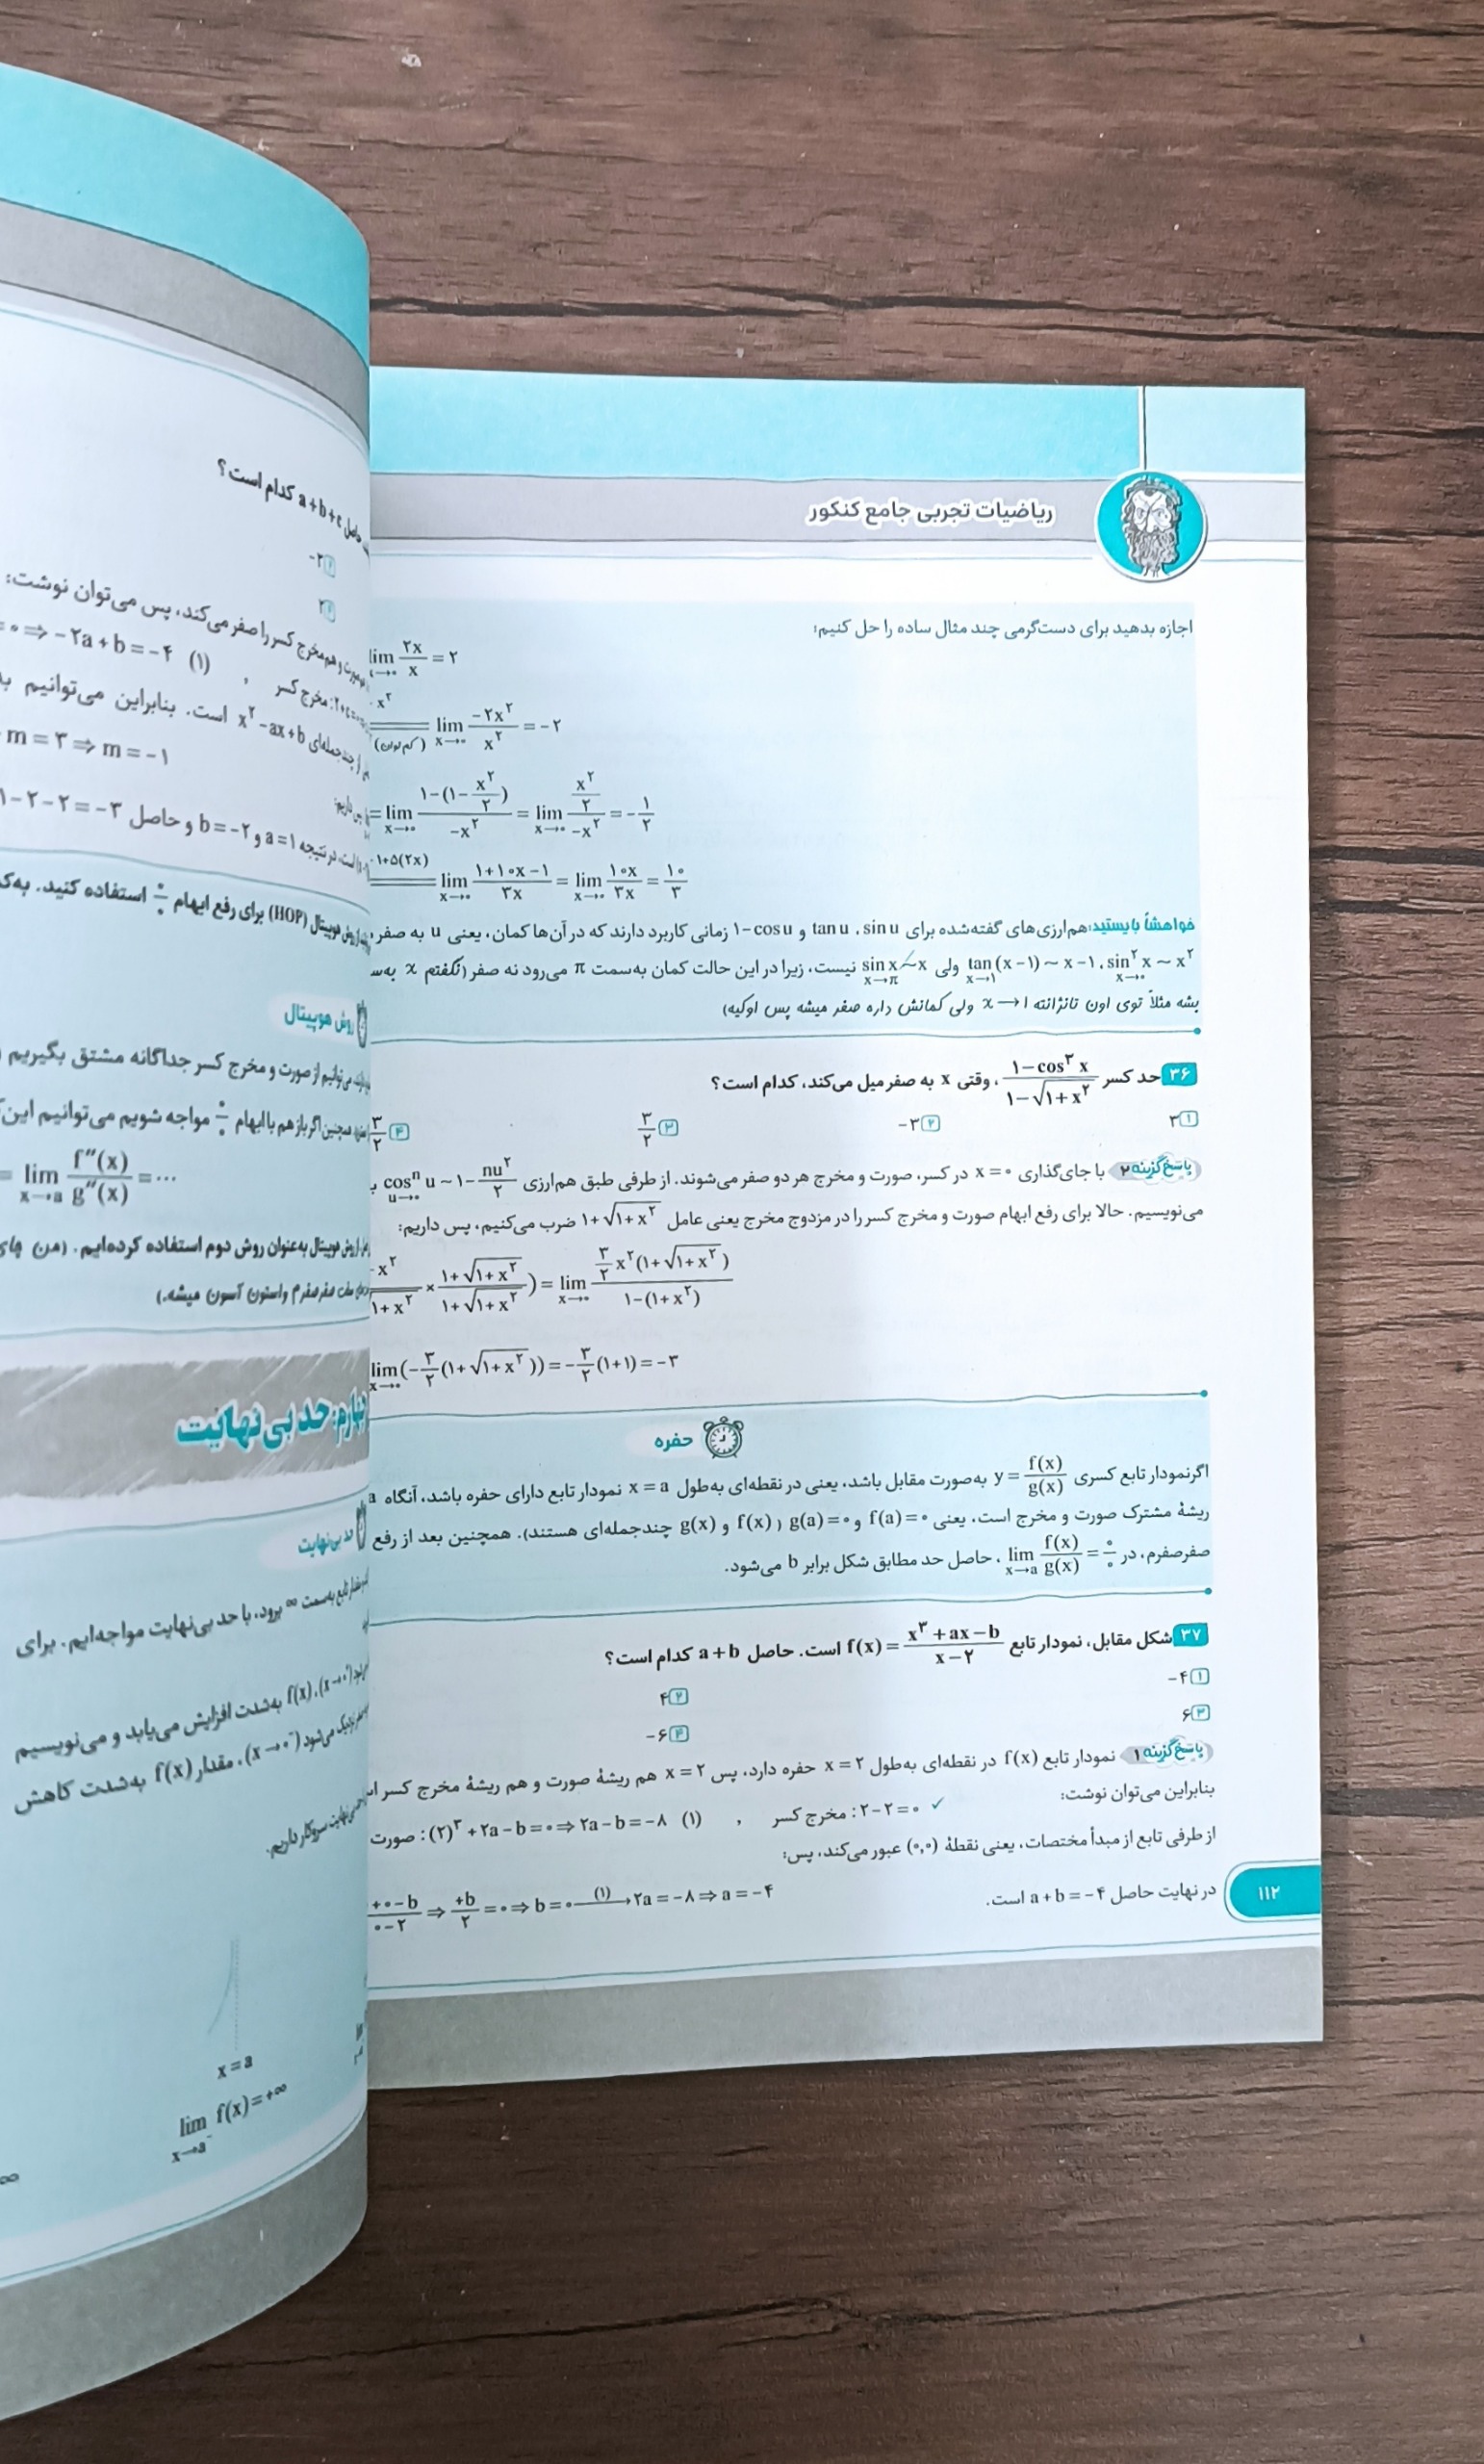 ریاضیات تجربی جامع کنکور
اجازه بدهید برای دست‌گرمی چند مثال ساده را حل کنیم:
lim ۲x/x = ۲
x²
(کم توان) lim x→۰ −۲x²/x² = −۲
= lim x→۰ (۱−(۱−x²/۲))/−x² = lim x→۰ (x²/۲)/−x² = −۱/۲
۱+۵(۲x) lim x→۰ (۱+۱۰x−۱)/۳x = lim x→۰ ۱۰x/۳x = ۱۰/۳
خواهشاً بایستید: هم‌ارزی‌های گفته‌شده برای sin u ، tan u و ۱−cos u زمانی کاربرد دارند که در آن‌ها کمان، یعنی u به صفر
sin² x ~ x² x→۰ ، tan(x−۱) ~ x−۱ x→۱ ولی sin x ~ x x→π نیست، زیرا در این حالت کمان به‌سمت π می‌رود نه صفر (نگفتم x به‌س
بشه مثلاً توی اون تانژانته x→۱ ولی کمانش داره صفر میشه پس اوکیه)
۳۶ حد کسر (۱−cos³ x)/(۱−√(۱+x²)) ، وقتی x به صفر میل می‌کند، کدام است؟
۱) ۳ ۲) −۳ ۳) ۳/۲ ۴) ۳/۲
پاسخ گزینه ۲ با جای‌گذاری x = ۰ در کسر، صورت و مخرج هر دو صفر می‌شوند. از طرفی طبق هم‌ارزی cosⁿ u ~ ۱− nu²/۲ u→۰
می‌نویسیم. حالا برای رفع ابهام صورت و مخرج کسر را در مزدوج مخرج یعنی عامل ۱+√(۱+x²) ضرب می‌کنیم، پس داریم:
x²/۱+x² × (۱+√(۱+x²))/(۱+√(۱+x²))) = lim x→۰ (۳/۲ x²(۱+√(۱+x²)))/(۱−(۱+x²))
lim x→۰ (−۳/۲(۱+√(۱+x²))) = −۳/۲(۱+۱) = −۳
حفره
اگر نمودار تابع کسری y = f(x)/g(x) به‌صورت مقابل باشد، یعنی در نقطه‌ای به‌طول x = a نمودار تابع دارای حفره باشد، آنگاه a
ریشهٔ مشترک صورت و مخرج است، یعنی f(a) = ۰ و g(a) = ۰ (f(x) و g(x) چندجمله‌ای هستند). همچنین بعد از رفع
صفرصفرم، در lim x→a f(x)/g(x) = ۰/۰ ، حاصل حد مطابق شکل برابر b می‌شود.
۳۷ شکل مقابل، نمودار تابع f(x) = (x³+ax−b)/(x−۲) است. حاصل a+b کدام است؟
۱) −۴ ۲) ۴
۳) ۶ ۴) −۶
پاسخ گزینه ۱ نمودار تابع f(x) در نقطه‌ای به‌طول x = ۲ حفره دارد، پس x = ۲ هم ریشهٔ صورت و هم ریشهٔ مخرج کسر
بنابراین می‌توان نوشت:
✓ ۲−۲=۰ : مخرج کسر , (۱) (۲)³+۲a−b=۰ ⇒ ۲a−b=−۸ : صورت
از طرفی تابع از مبدأ مختصات، یعنی نقطهٔ (۰,۰) عبور می‌کند، پس:
+۰−b/۰−۲ ⇒ +b/۲ = ۰ ⇒ b = ۰ (۱)→ ۲a = −۸ ⇒ a = −۴
در نهایت حاصل a+b = −۴ است.
۱۱۲
حاصل a+b+c کدام است؟
−۲
۲
هم مخرج کسر را صفر می‌کند، پس می‌توان نوشت:
= ۰ ⇒ −۲a+b = −۴ (۱) , : مخرج کسر
چندجمله‌ای x²−ax+b است. بنابراین می‌توانیم
m = ۳ ⇒ m = −۱
در نتیجه a = ۱ و b = −۲ و حاصل ۱−۲−۲ = −۳
هوپیتال (HOP) برای رفع ابهام ۰/۰ استفاده کنید.
روش هوپیتال
می‌توانیم از صورت و مخرج کسر جداگانه مشتق بگیریم
همچنین اگر باز هم با ابهام ۰/۰ مواجه شویم می‌توانیم این
= lim x→a f″(x)/g″(x) = ...
از روش هوپیتال به‌عنوان روش دوم استفاده کرده‌ایم. (من
صفرصفرم واستون آسون میشه.)
حد بی‌نهایت
حد بی‌نهایت
به‌سمت ∞ برود، با حد بی‌نهایت مواجه‌ایم. برای
(x→۰⁺)، f(x) به‌شدت افزایش می‌یابد و می‌نویسیم
نزدیک می‌شود (x→۰⁻)، مقدار f(x) به‌شدت کاهش
سروکار داریم.
x = a
lim x→a⁻ f(x) = +∞
∞